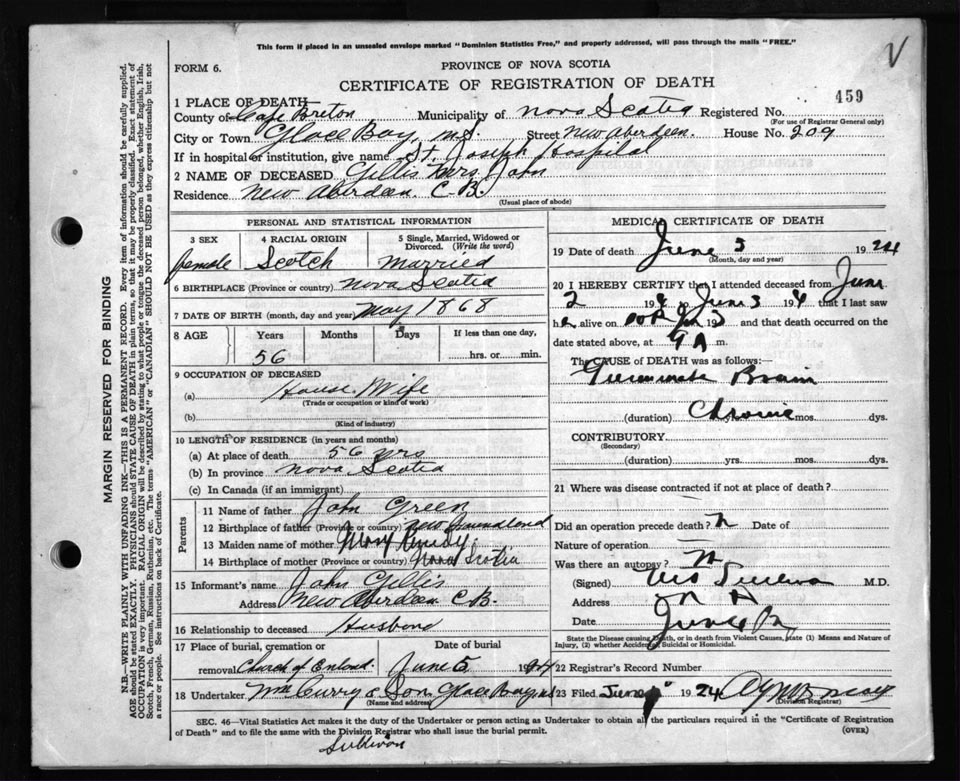 This form if placed in an unsealed envelope marked "Dominion Statistics Free," and properly addressed, will pass through the mails "FREE."
V
FORM 6.
PROVINCE OF NOVA SCOTIA
CERTIFICATE OF REGISTRATION OF DEATH
459
1 PLACE OF DEATH
County of Cape Breton Municipality of Nova Scotia Registered No.
(For use of Registrar General only)
City or Town Glace Bay, N.S. Street New Aberdeen. House No. 209
If in hospital or institution, give name St. Joseph Hospital
2 NAME OF DECEASED Gillis Mrs John
Residence New Aberdeen C.B.
(Usual place of abode)
PERSONAL AND STATISTICAL INFORMATION
3 SEX 4 RACIAL ORIGIN 5 Single, Married, Widowed or Divorced. (Write the word)
female Scotch Married
6 BIRTHPLACE (Province or country) Nova Scotia
7 DATE OF BIRTH (month, day and year) May 1868
8 AGE Years Months Days If less than one day,
56 hrs. or min.
9 OCCUPATION OF DECEASED
(a) House Wife
(Trade or occupation or kind of work)
(b)
(Kind of industry)
10 LENGTH OF RESIDENCE (in years and months)
(a) At place of death 56 yrs
(b) In province Nova Scotia
(c) In Canada (if an immigrant)
Parents
11 Name of father John Green
12 Birthplace of father (Province or country) New Foundland
13 Maiden name of mother Mary
14 Birthplace of mother (Province or country) Nova Scotia
15 Informant's name John Gillis
Address New Aberdeen C.B.
16 Relationship to deceased Husband
17 Place of burial, cremation or Date of burial
removal Church of England. June 5 1924
18 Undertaker McCurry & Son Glace Bay
(Name and address)
MEDICAL CERTIFICATE OF DEATH
19 Date of death June 3 1924
(Month, day and year)
20 I HEREBY CERTIFY that I attended deceased from June
2 19 4 to June 3 19 4 that I last saw
h er alive on 3 and that death occurred on the
date stated above, at 9 A m.
The CAUSE of DEATH was as follows:
Brain
(duration) Chronic mos. dys.
CONTRIBUTORY
(Secondary)
(duration) yrs. mos. dys.
21 Where was disease contracted if not at place of death?
Did an operation precede death? N Date of
Nature of operation
Was there an autopsy? N
(Signed) M.D.
Address
Date June
State the Disease causing Death, or in death from Violent Causes, state (1) Means and Nature of Injury, (2) whether Accidental, Suicidal or Homicidal.
22 Registrar's Record Number
23 Filed June 1924
(Division Registrar)
SEC. 46—Vital Statistics Act makes it the duty of the Undertaker or person acting as Undertaker to obtain all the particulars required in the "Certificate of Registration
of Death" and to file the same with the Division Registrar who shall issue the burial permit.
(OVER)
Sullivan
MARGIN RESERVED FOR BINDING
N.B.—WRITE PLAINLY WITH UNFADING INK—THIS IS A PERMANENT RECORD. Every item of information should be carefully supplied.
AGE should be stated EXACTLY. PHYSICIANS should STATE CAUSE OF DEATH in plain terms, so that it may be properly classified. Exact statement of
OCCUPATION is very important. RACIAL ORIGIN will be described by stating to what people or tongue the deceased person belonged, whether English, Irish,
Scotch, French, German, Russian, Ruthenian, etc. The terms "AMERICAN" or "CANADIAN" SHOULD NOT BE USED as they express citizenship but not
a race or people. See instructions on back of Certificate.